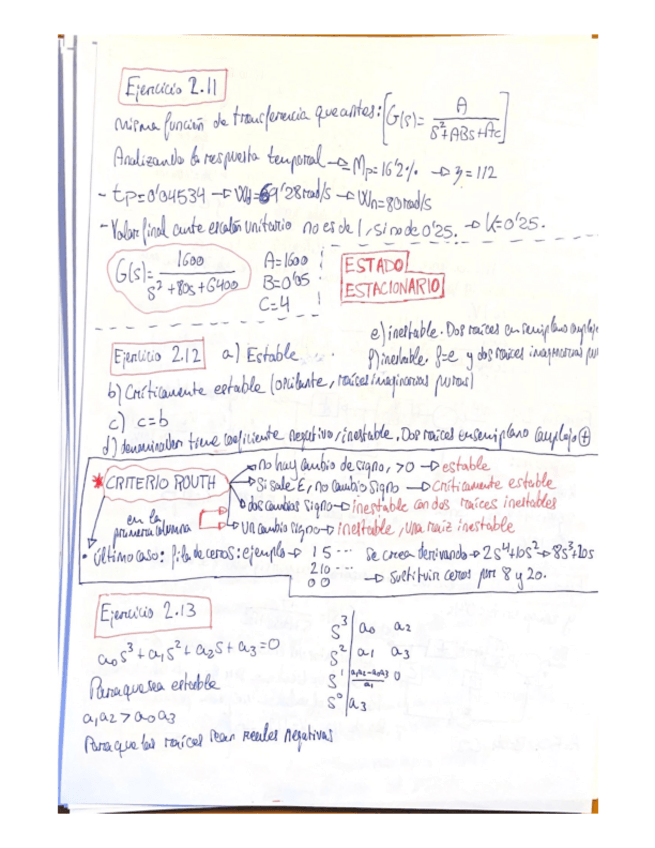 Ejercicio 2.11
misma función de transferencia que antes: [G(s)= A / s²+ABs+Ac]
Analizando la respuesta temporal → Mp=16'2% → ʒ=1/2
- tp=0'04534 → Wd=69'28rad/s → Wn=80rad/s
- Valor final ante escalón unitario no es de 1, sino de 0'25. → K=0'25.
G(s)= 1600 / s²+80s+6400
A=1600
B=0'05
C=4
ESTADO
ESTACIONARIO
Ejercicio 2.12 a) Estable
e) inestable. Dos raíces en semiplano
f) inestable. f=e y dos raíces imaginarias
b) Críticamente estable (oscilante, raíces imaginarias puras)
c) c=b
d) denominador tiene coeficiente negativo, inestable. Dos raíces en semiplano complejo ⊕
* CRITERIO ROUTH
en la primera columna
→ no hay cambio de signo, >0 → estable
→ Si sale E, no cambio signo → Críticamente estable
→ dos cambios signo → inestable con dos raíces inestables
→ un cambio signo → inestable, una raíz inestable
• último caso: fila de ceros: ejemplo → 1 5 ... se crea derivando → 2s⁴+10s² → 8s³+20s
2 10 ...
0 0 → sustituir ceros por 8 y 20.
Ejercicio 2.13
a₀s³+a₁s²+a₂s+a₃=0
Para que sea estable
a₁a₂>a₀a₃
Para que las raíces sean reales negativas
s³ | a₀ a₂
s² | a₁ a₃
s¹ | a₁a₂-a₀a₃ / a₁ 0
s⁰ | a₃